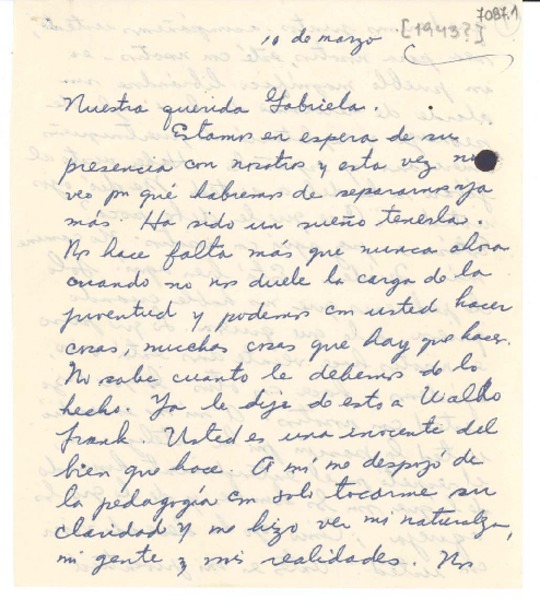 7087.1
[1943?]
10 de marzo
Nuestra querida Gabriela.
Estamos en espera de su
presencia con nosotros y esta vez no
veo por qué habremos de separarnos ya
más. Ha sido un sueño tenerla.
Nos hace falta más que nunca ahora
cuando no nos duele la carga de la
juventud y podemos con usted hacer
cosas, muchas cosas que hay que hacer.
No sabe cuanto le debemos de lo
hecho. Ya le dije de esto a Waldo
Frank. Usted es una inocente del
bien que hace. A mí me despojó de
la pedagogía con solo tocarme su
claridad y me hizo ver mi naturaleza,
mi gente y mis realidades. Nos